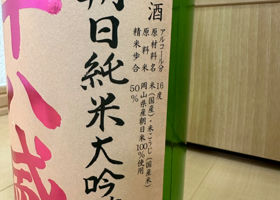 酒
アルコール分 16度
原材料名 米(国産)・米こうじ(国産米)
原料米 岡山県産朝日米100%使用
精米歩合 50%
朝日純米大吟
十八歳